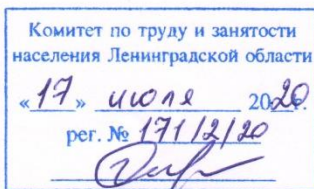 Комитет по труду и занятости
населения Ленинградской области
«17» июля 2020г.
рег. № 171/2/20